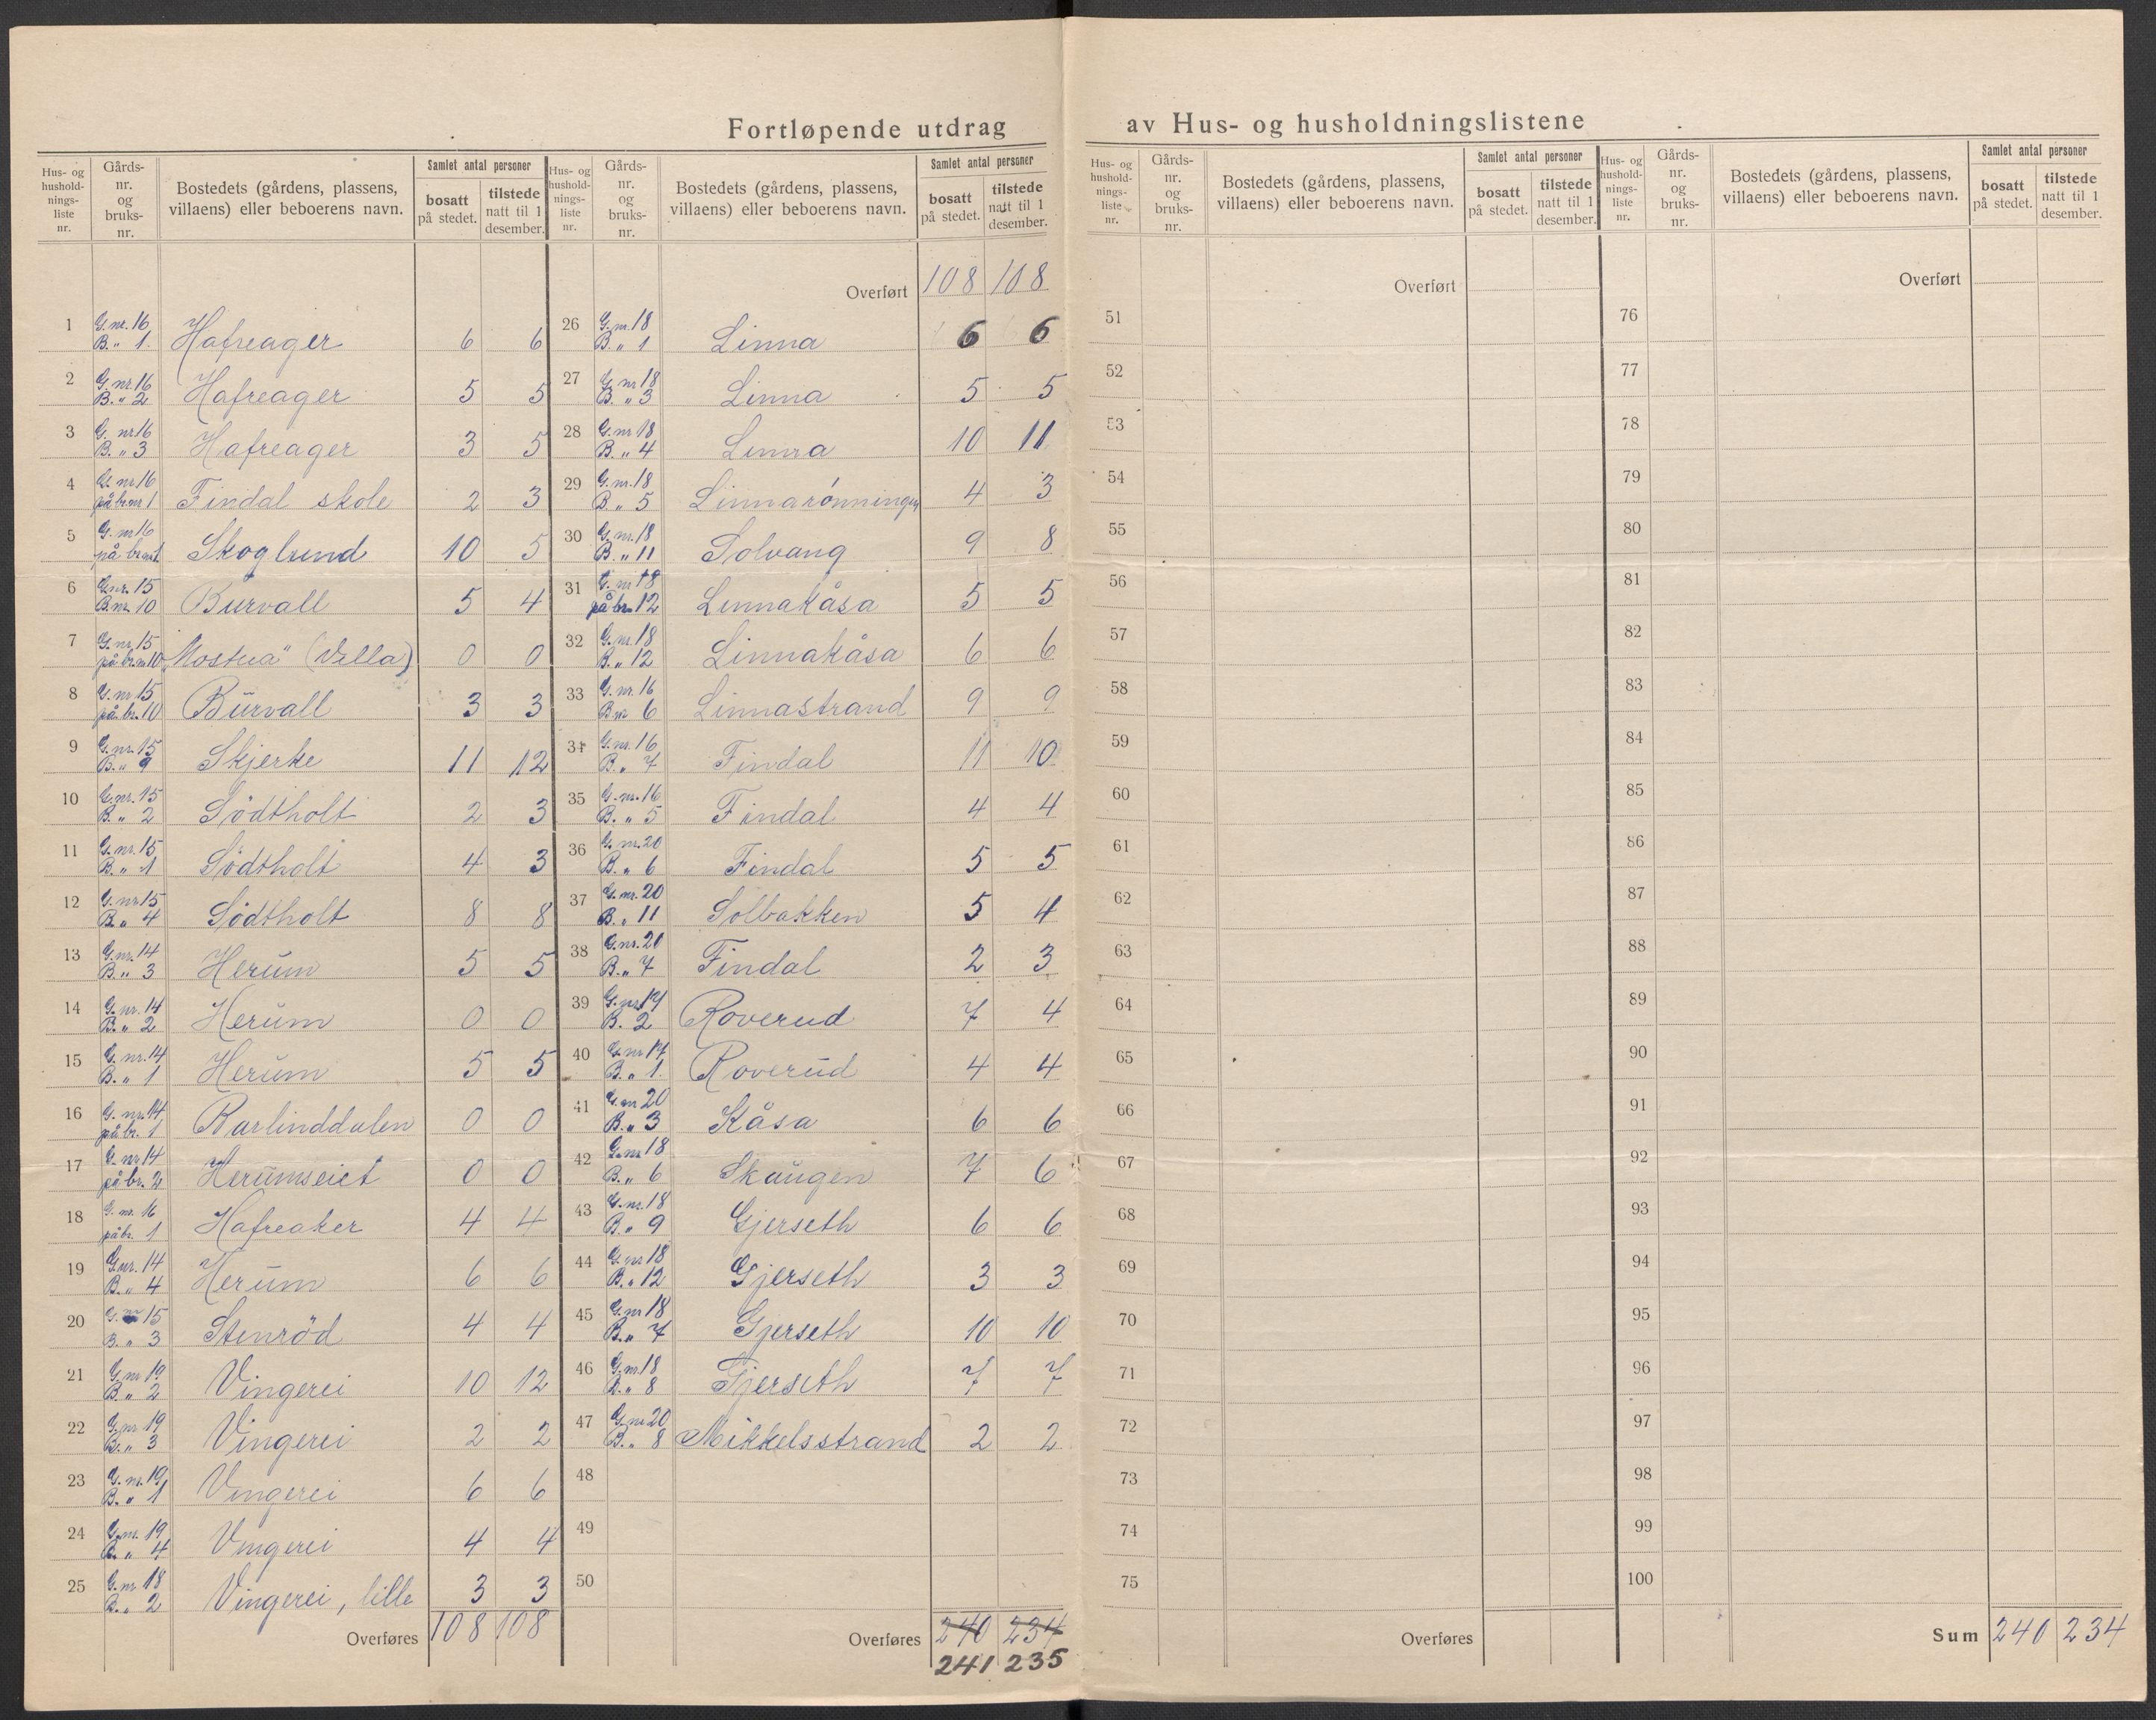 Fortløpende utdrag av Hus- og husholdningslistene
Hus- og hushold-nings-liste nr. | Gårds-nr. og bruks-nr. | Bostedets (gårdens, plassens, villaens) eller beboerens navn. | Samlet antal personer | bosatt på stedet. | tilstede natt til 1 desember.
1 G. nr. 16 B. " 1. Hafreager 6 6
2 G. nr. 16 B. " 2 Hafreager 5 5
3 G. nr 16 B. " 3 Hafreager 3 5
4 G. nr. 16 på br.nr 1 Findal skole 2 3
5 G. nr 16 på br.nr 1. Skoglund 10 5
6 G.nr. 15 B.nr. 10 Burvall 5 4
7 G. nr. 15 på br.nr 10 "Mostua" (Villa) 0 0
8 G. nr 15 på br. 10 Burvall 3 3
9 G. nr. 15 B. " 9 Skjerke 11 12
10 G. nr. 15 B. " 2 Södtholt 2 3
11 G. nr. 15 B. " 1 Södtholt 4 3
12 G. nr 15 B. " 4 Södtholt 8 8
13 G. nr. 14 B. " 3 Herum 5 5
14 G. nr. 14 B. " 2 Herum 0 0
15 G. nr. 14 B. " 1 Herum 5 5
16 G. nr. 14 på br. 1 Barlinddalen 0 0
17 G. nr 14 på br. 2 Herumseiet 0 0
18 G. nr. 16 på br. 1 Hafreaker 4 4
19 G. nr. 14 B. " 4 Herum 6 6
20 G. nr 15 B. " 3 Stenröd 4 4
21 G. nr 19 B. " 2 Vingerei 10 12
22 G. nr 19 B. " 3 Vingerei 2 2
23 G. nr. 19 B. " 1 Vingerei 6 6
24 G. nr. 19 B. " 4 Vingerei 4 4
25 G. nr 18 B. " 2 Vingerei, lille 3 3
Overføres 108 108
Hus- og hushold-nings-liste nr. | Gårds-nr. og bruks-nr. | Bostedets (gårdens, plassens, villaens) eller beboerens navn. | Samlet antal personer | bosatt på stedet. | tilstede natt til 1 desember.
Overført 108 108
26 G. nr 18 B. " 1 Linna 6 6
27 G. nr 18 B. " 3 Linna 5 5
28 G. nr 18 B. " 4 Linna 10 11
29 G. nr. 18 B. " 5 Linnarönningen 4 3
30 G. nr. 18 B. " 11 Solvang 9 8
31 G. nr 18 på br. 12 Linnakåsa 5 5
32 G. nr. 18 B. " 12 Linnakåsa 6 6
33 G. nr. 16 B nr 6 Linnastrand 9 9
34 G. nr. 16 B. " 7 Findal 11 10
35 G. nr. 16 B. " 5 Findal 4 4
36 G. nr. 20 B. " 6 Findal 5 5
37 G. nr. 20 B. " 11 Solbakken 5 4
38 G. nr. 20 B. " 7 Findal 2 3
39 G. nr 17 B. 2 Roverud 7 4
40 G. nr 17 B. " 1. Roverud 4 4
41 G. nr 20 B. " 3 Kåsa 6 6
42 G. nr 18 B. " 6 Skaugen 7 6
43 G. nr. 18 B. " 9 Gjerseth 6 6
44 G. nr 18 B. " 12 Gjerseth 3 3
45 G. nr 18 B. " 7 Gjerseth 10 10
46 G. nr 18 B. " 8 Gjerseth 7 7
47 G. nr 20 B. " 8 Mikkelsstrand 2 2
48
49
50
Overføres 240 234
241 235
Hus- og hushold-nings-liste nr. | Gårds-nr. og bruks-nr. | Bostedets (gårdens, plassens, villaens) eller beboerens navn. | Samlet antal personer | bosatt på stedet. | tilstede natt til 1 desember.
Overført
51
52
53
54
55
56
57
58
59
60
61
62
63
64
65
66
67
68
69
70
71
72
73
74
75
Overføres
Hus- og hushold-nings-liste nr. | Gårds-nr. og bruks-nr. | Bostedets (gårdens, plassens, villaens) eller beboerens navn. | Samlet antal personer | bosatt på stedet. | tilstede natt til 1 desember.
Overført
76
77
78
79
80
81
82
83
84
85
86
87
88
89
90
91
92
93
94
95
96
97
98
99
100
Sum 240 234